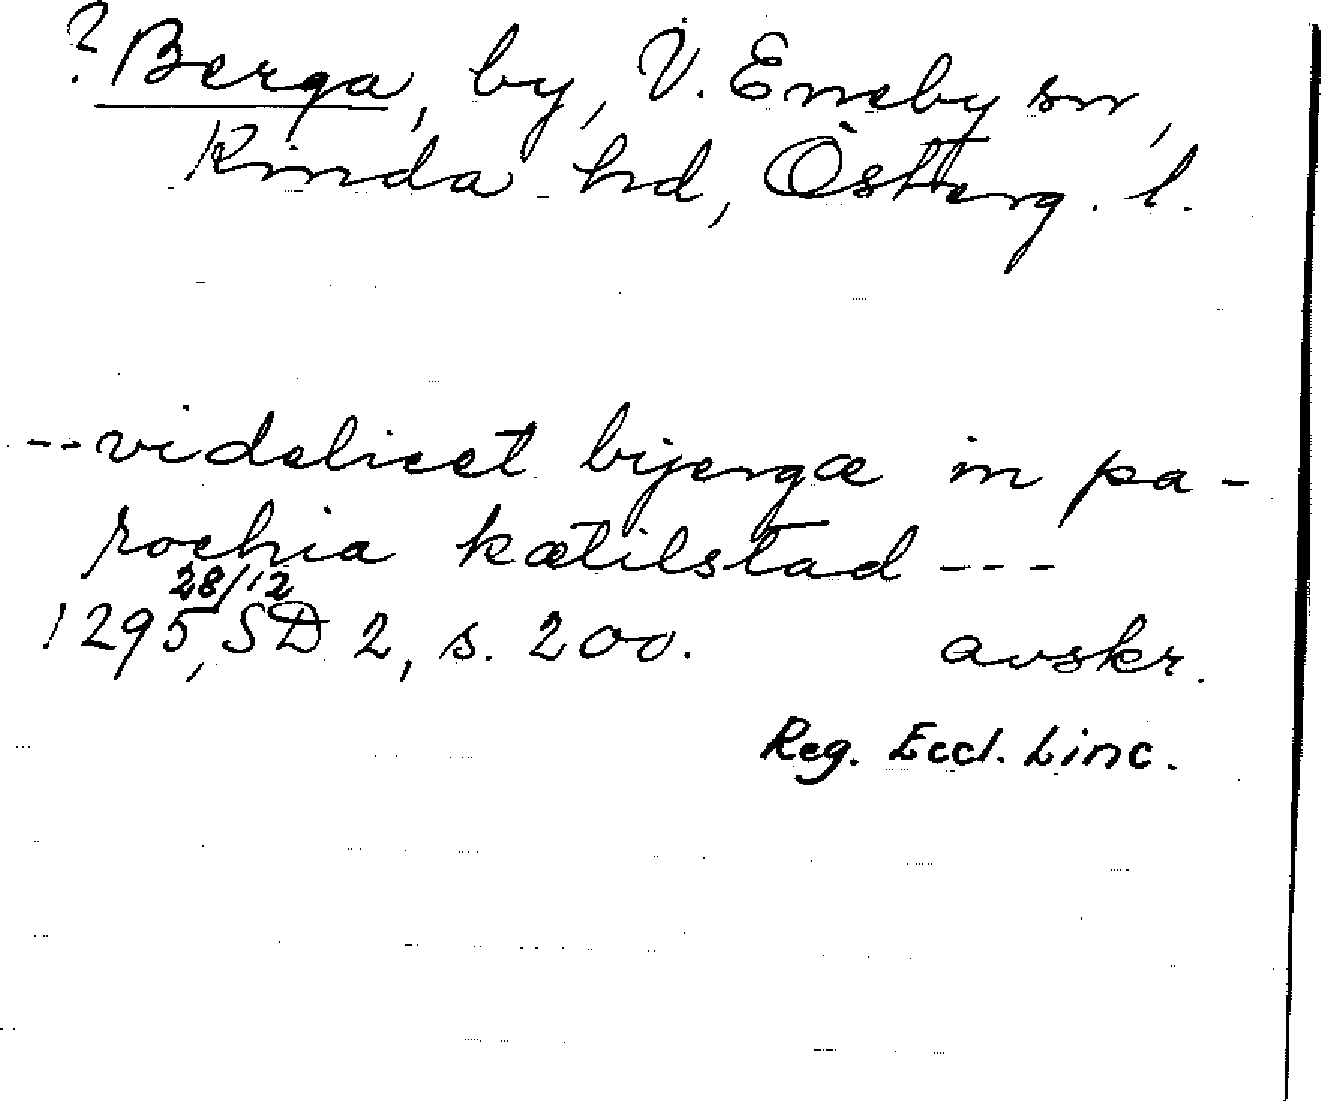 ? Berga, by, V. Eneby sn,
Kinda hd, Österg. l.
-- videlicet bijergæ in pa-
rochia kætilstad ---
28/12
1295, SD 2, s. 200. avskr.
Reg. Eccl. Linc.